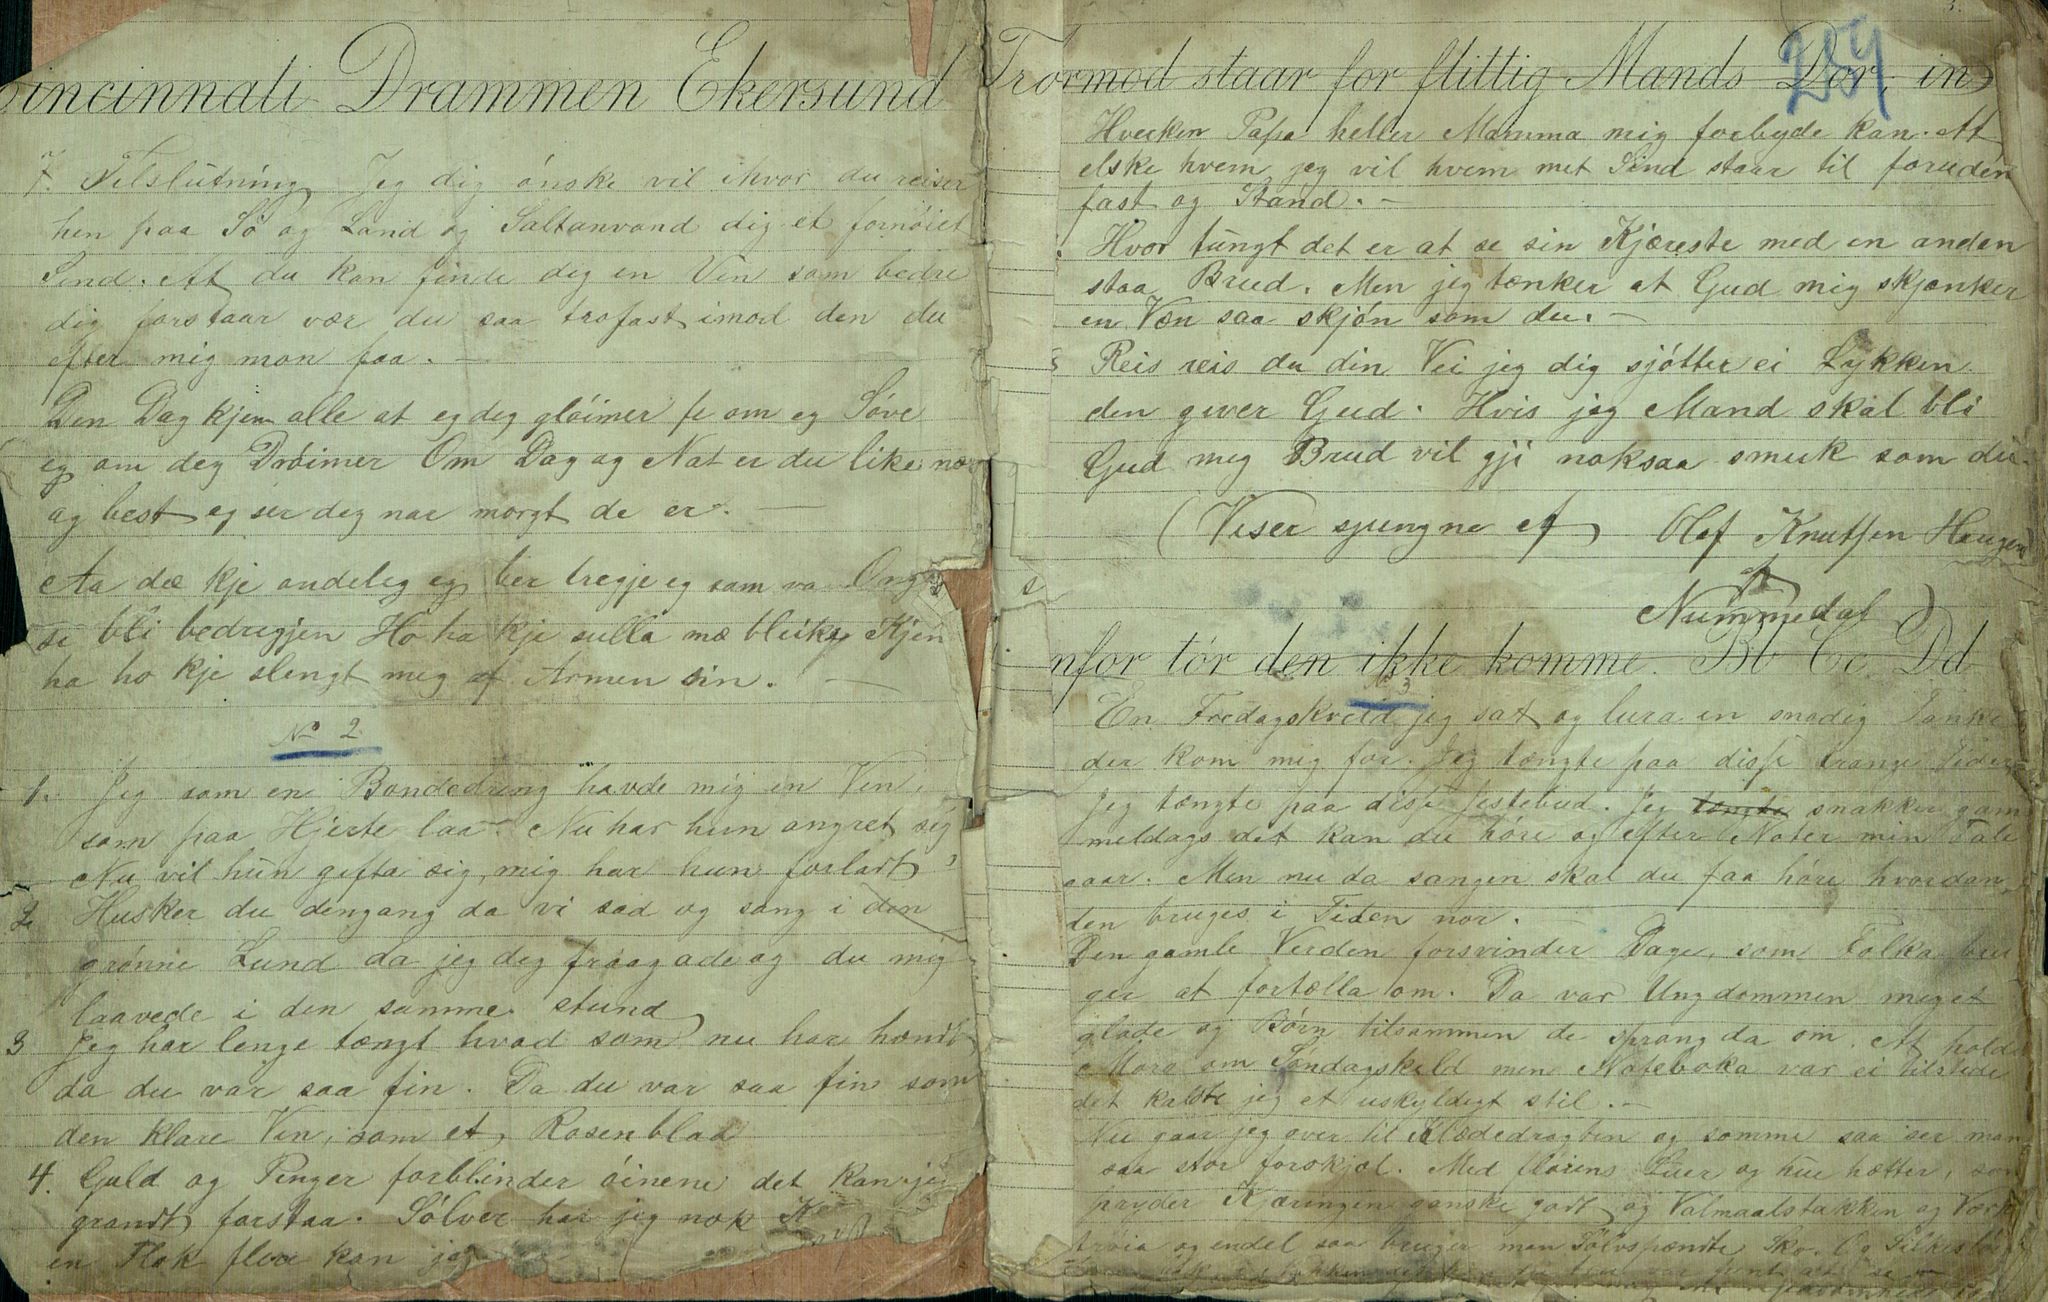 Cincinnati Drammen Ekersund
7. Tilslutning Jeg dig ónske vil ihvor du reiser
hen paa Só og Land og Saltanvand dig et fornóiet
Sind. At du kan finde dig en Vin som bedre
dig forstaar vær du saa trofast imod den du
efter mig mon faa. —
Den Dag kjem alle at eg deg glóimer fe om eg Sóve
eg om deg Dróimer Om Dag og Nat er du like nær
og best eg ser deg nar morgt de er. —
Aa dæ kje andeleg eg ber tregje eg som va Ong
se bli bedregjen Ho ha kje sulla mæ bleike Kjen
ha ho kje slengt meg af Armen sin. —
No 2
1. Jeg som ene Bondedreng havde mig en Ven,
som paa Hjerte laa. Nu har hun angret sig
Nu vil hun gifta sig, mig har hun forladt
2 Husker du dengang da vi sad og sang i den
grónne Lund da jeg deg fraagade og du mig
laavede i den samme stund
3 Jeg har lenge tængt hvad som nu har hændt
da du var saa fin. Da du var saa fin som
den klare Vin, som et Rosenblad
4. Guld og Penger forblinder óinene det kan jeg
grandt forstaa. Sólver har jeg nok
en Flok flere kan jeg
3.
289
Trormod staar for flittig Mands Dor, in
Hverken Papa heller Mamma mig forbyde kan. At
elske hvem jeg vil hvem met Sind staar til foruden
fast og Stand. —
Hvor tungt det er at se sin Kjæreste med en anden
staa Brud. Men jeg tænker at Gud mig skjænker
en Væn saa skjón som du. —
Reis reis du din Vei jeg dig sjótter ei Lykken
den giver Gud. Hvis jeg Mand skal bli
Gud meg Brud vil gji noksaa smuk som du.
(Viser sjungne af Olaf Knutsen Haugen
af
Nummedal)
nfor tór den ikke komme. Bb Cc Dd
No 3
En Fredagskveld jeg sat og lura en snadig Tanke
der kom mig for. Jeg tængte paa disse trange Tider
Jeg tængte paa disse Jestebud. Jeg tængte snakker gam
meldags det kan du hóre og efter Noter min Tale
gaar. Men nu da sangen skal du faa hóre hvordan
den bruges i Tiden nor. —
Den gamle Verden forsvinder Dage, som Folka bru
ger at fortælla om. Da var Ungdommen meget
glade og Bórn tilsammen de sprang da om. At holde
Moro om Sóndagskeld men Noteboka var ei tilstede
det kalste jeg et uskyldigt stil. —
Nu gaar jeg over til Klædedragten og somme saa ser man
saa stor forskjel. Med flóiens Luer og hue hætter, som
pryder Kjæringen ganske godt og Valmaalstakken og Værk
tróia og endel saa bruger man Sólvspændte Sko. Og Silkesló